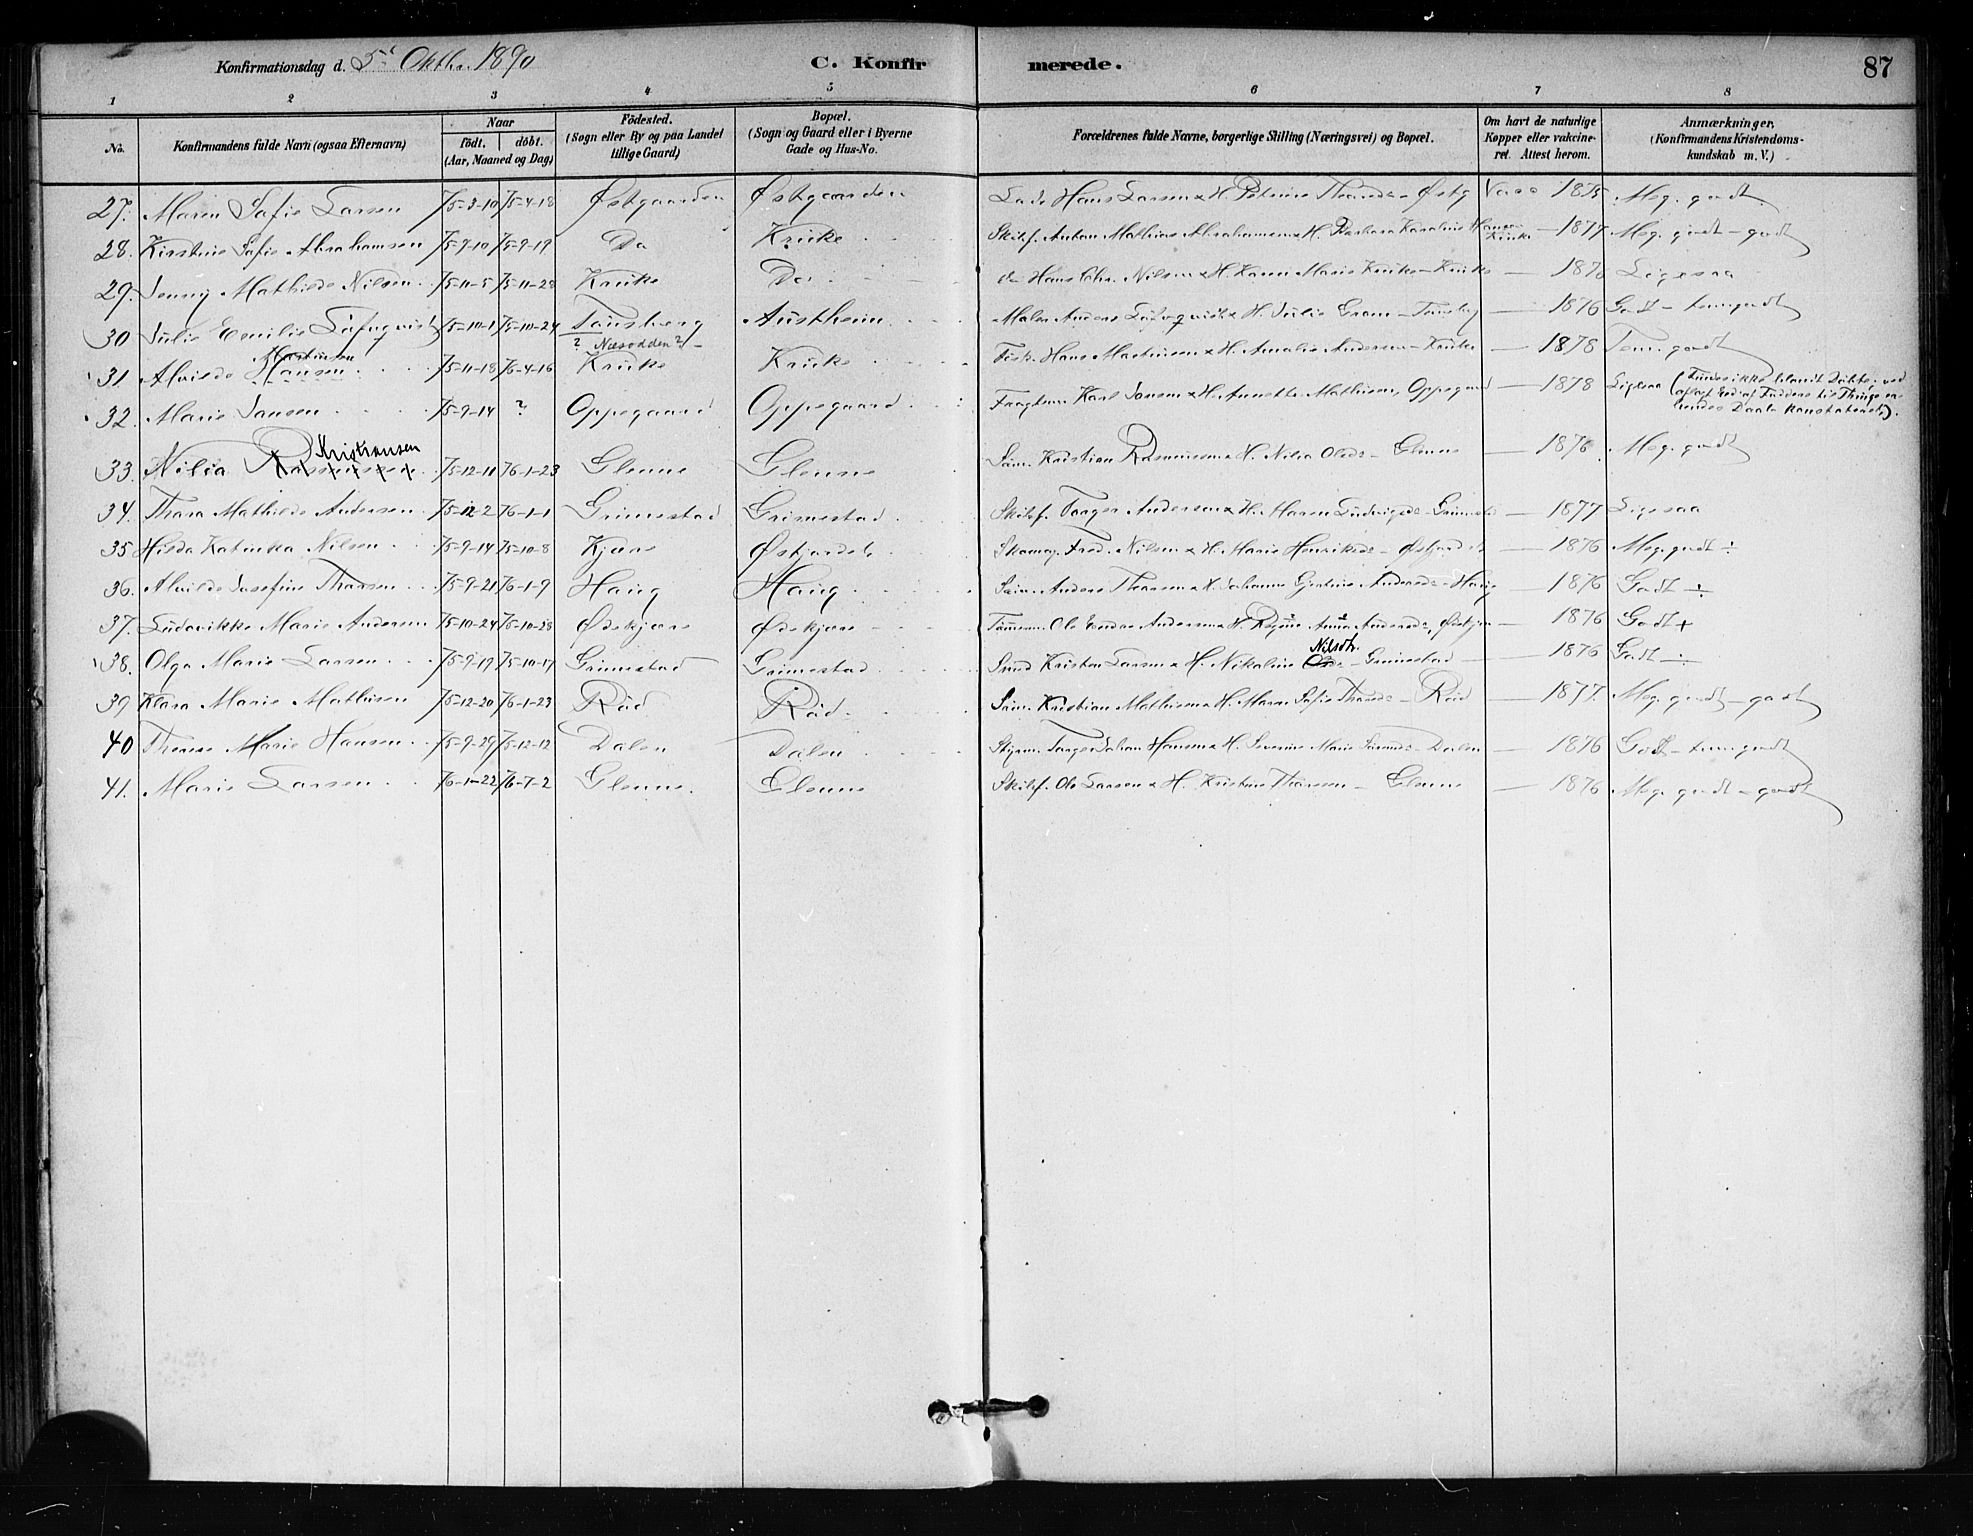 Konfirmationsdag d. 5te Oktbr. 1890 C. Konfirmerede. 87
1 2 3 4 5 6 7 8
No. Konfirmandens fulde Navn (ogsaa Efternavn) Naar født. døbt. (Aar, Maaned og Dag) Fødested. (Sogn eller By og paa Landet tillige Gaard) Bopæl. (Sogn og Gaard eller i Byerne Gade og Hus-No. Forældrenes fulde Navne, borgerlige Stilling (Næringsvei) og Bopæl. Om havt de naturlige Kopper eller vakcineret. Attest herom. Anmærkninger. (Konfirmandens Kristendomskundskab m. V.)
27. Maren Sofie Larsen 75-3-10 75-4-18 Østgaarden Østgaarden Hans Larsen x H. Petrine Thoresd. - Østg Vacc 1875 Meg. godt.
28. Kirstine Sofie Abrahamsen 75-9-10 75-9-19 Do Kruke Skibsf. Anton Mathias Abrahamsen x H. Barbara Karoline Hansen Kruke - 1877 Meg. godt - godt
29. Jenny Mathilde Nilsen 75-11-5 75-11-28 Kruke Do do Hans Chr. Nilsen x H. Karen Marie Kruke - Kruke - 1876 Ligesaa
30 Julie Emilie Löfnqvist 75-10-1 75-10-24 Tønsberg ? Næsodden? Austheim Maler Anders x H. Julie Gram - Tønsbg - 1876 Godt - temgodt
31. Alvilde Hansen Martinsen 75-11-18 76-4-16 Kruke Kruke Fisk. Hans Martinsen x H. Amalie Andersen - Kruke - 1878 Tem. godt
32. Marie Jansen 75-9-14 ? Oppegaard Oppegaard Karl Jansen x H. Annette Mathisen, Oppegaard - 1878 Ligesaa (Findes ikke blandt Døbte; ved aflagt Ed af Fadderne til Things er hendes Daab konstateret).
33. Nilia Rasmussen Kristiansen 75-12-11 76-1-23 Glenne Glenne Søm. Kristian Rasmussen x H. Nilia Olsd. - Glenne - 1876. Meg. godt
34. Thora Mathilde Andersen 75-12-2 76-1-1 Grimestad Grimestad Skibsf. Torger Andersen x H. Maren Ludvigsd. - Grimestad - 1877 Ligesaa
35 Hilda Katinka Nilsen 75-9-14 75-10-8 Kjære Østjordet Skomag. Fred. Nilsen x H. Marie Henriksd. - Østjordet - 1876 Meg. godt ÷
36. Alvilde Josefine Thorsen 75-9-21 76-1-9 Haug Haug Søm. Anders Thorsen x H. Johanne Gjertine Andersd. - Haug - 1876 Godt ÷
37. Ludovikke Marie Andersen 75-10-24 75-10-28 Ødekjære Ødekjære Tømmerm. Ole Andersen x H. Regine Anne Andersd., Ødekjær - 1876 Godt +
38. Olga Marie Larsen 75-9-19 75-10-17 Grimestad Grimestad Smed Kristen Larsen x H. Nikoline Olsd. Nilsdt. - Grimestad - 1876 Godt ÷
39 Klara Marie Mathisen 75-12-20 76-1-23 Rød Rød Søm. Kristian Mathisen x H. Maren Sofie Thoresd. - Rød - 1877. Meg. godt - godt
40 Therese Marie Hansen 75-9-29 75-12-12 Dalen Dalen Styrm. Torger Johan Hansen x H. Severine Marie - Dalen - 1876 Godt - tem. godt
41. Marie Larsen 76-1-22 76-7-2 Glenne. Glenne Skibsf. Ole Larsen x H. Kristine Thorsen - Glenne - 1876 Meg. godt - godt